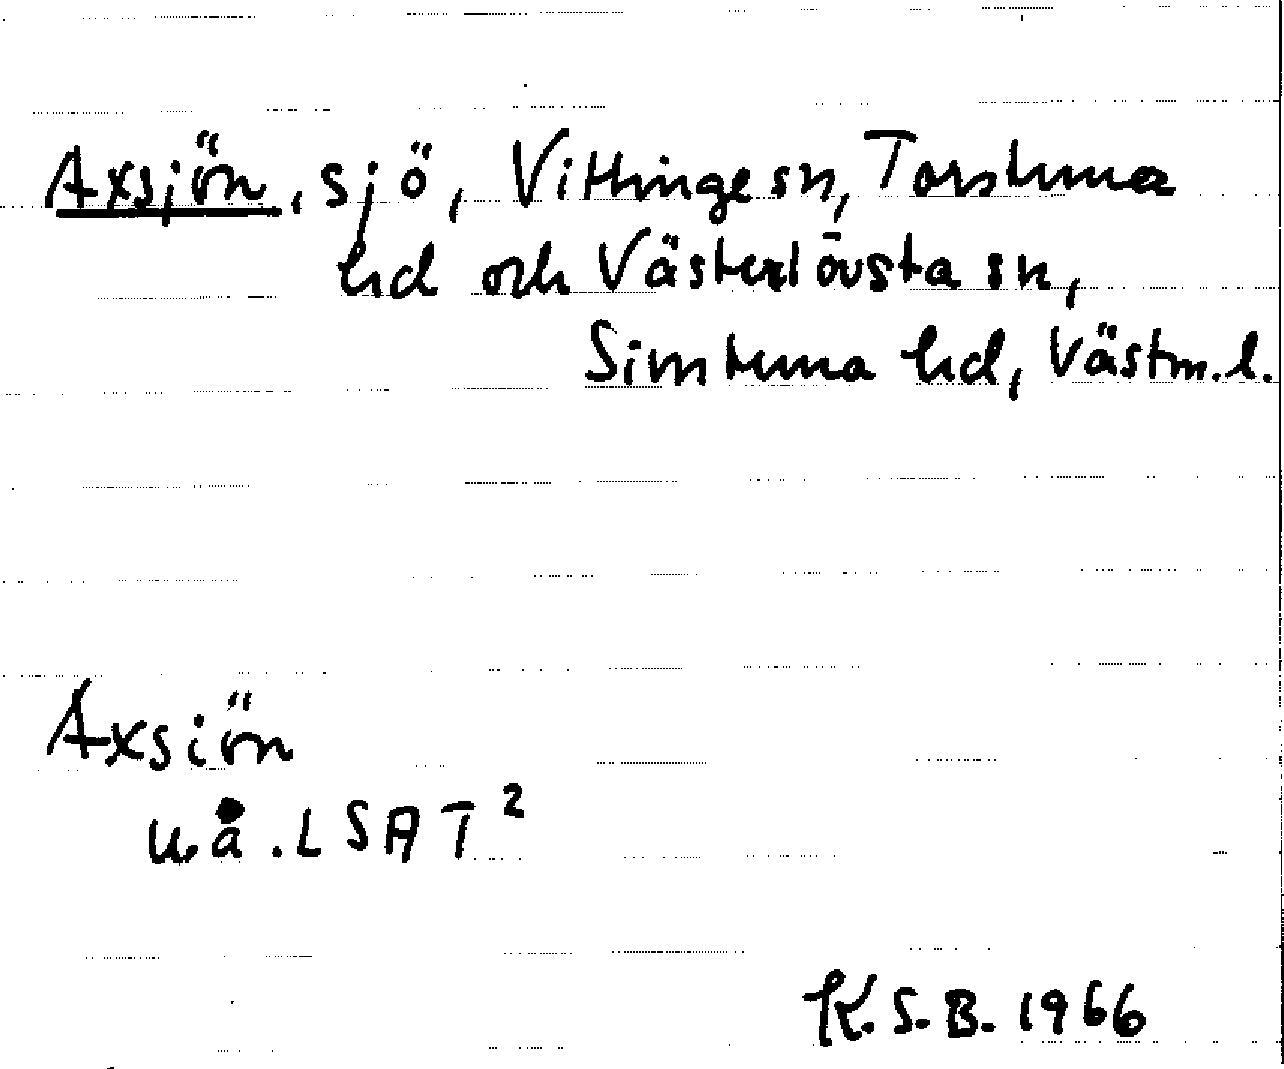 Axsjön, sjö, Vittinge sn, Torstuna
hd och Västerlövsta sn,
Simtuna hd, Västm. l.
Axsiön
uå. LSA T²
K.S.B. 1966